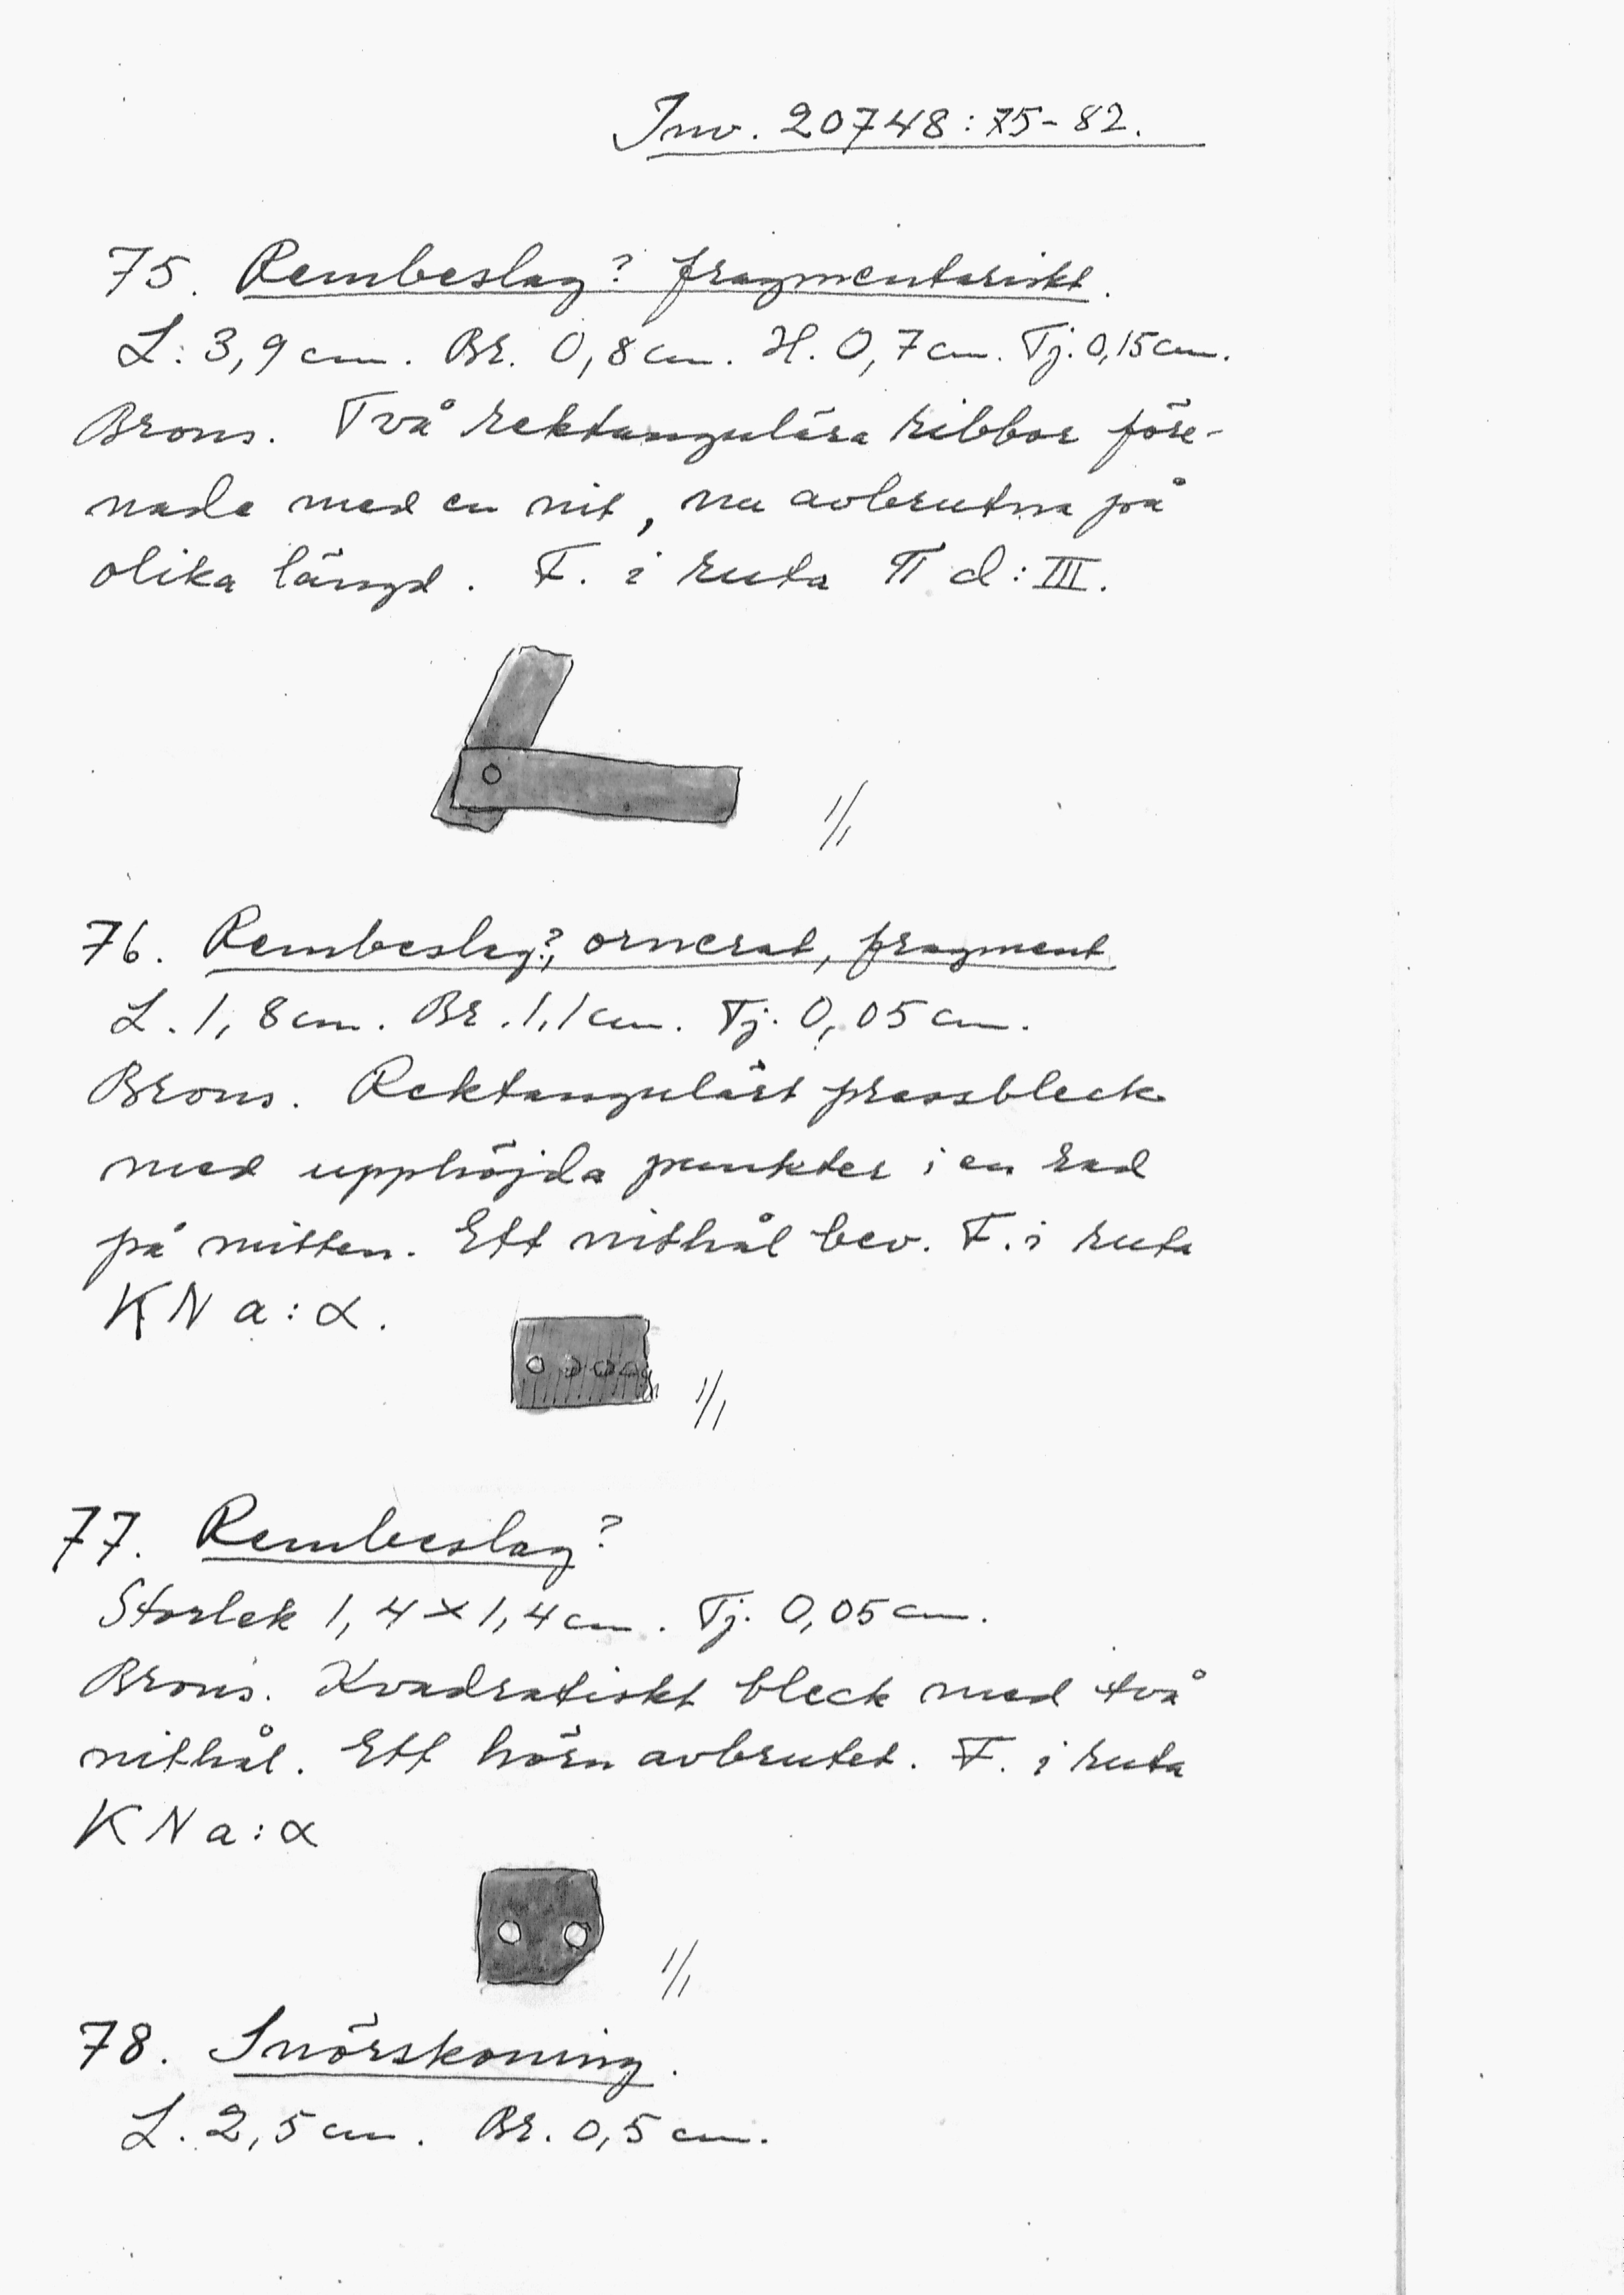 Inv. 20748:75-82.
75. Rembeslag? fragmentariskt.
L: 3,9 cm. Br. 0,8 cm. H. 0,7 cm. Tj. 0,15 cm.
Brons. Två rektangulära ribbor före-
nade med en nit, nu avbrutna på
olika längd. F. i ruta π d: III.
1/1
76. Rembeslag?, ornerat, fragment.
L. 1,8 cm. Br. 1,1 cm. Tj. 0,05 cm.
Brons. Rektangulärt pressbleck
med upphöjda punkter i en rad
på mitten. Ett nithål bev. F. i ruta
KN a: α.
1/1
77. Rembeslag?
Storlek 1,4 × 1,4 cm. Tj. 0,05 cm.
Brons. Kvadratiskt bleck med två
nithål. Ett hörn avbrutet. F. i ruta
KN a: α
1/1
78. Snörskoning.
L. 2,5 cm. Br. 0,5 cm.